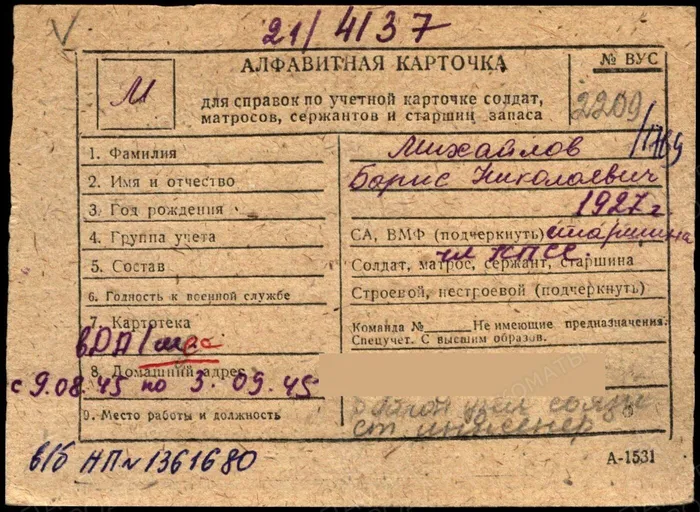 21/4137
АЛФАВИТНАЯ КАРТОЧКА
№ ВУС
М
для справок по учетной карточке солдат,
матросов, сержантов и старшин запаса
2209
/1769
1. Фамилия
Михайлов
2. Имя и отчество
Борис Николаевич
3. Год рождения
1927 г.
4. Группа учета
СА, ВМФ (подчеркнуть) старшина
5. Состав
чл КПСС
Солдат, матрос, сержант, старшина
6. Годность к военной службе
Строевой, нестроевой (подчеркнуть)
7. Картотека
Команда № Не имеющие предназначения.
Спецучет. С высшим образов.
в DA/
8. Домашний адрес
с 9.08.45 по 3.09.45
9. Место работы и должность
узел связи
ст инженер
в/б НП № 1361680
А-1531